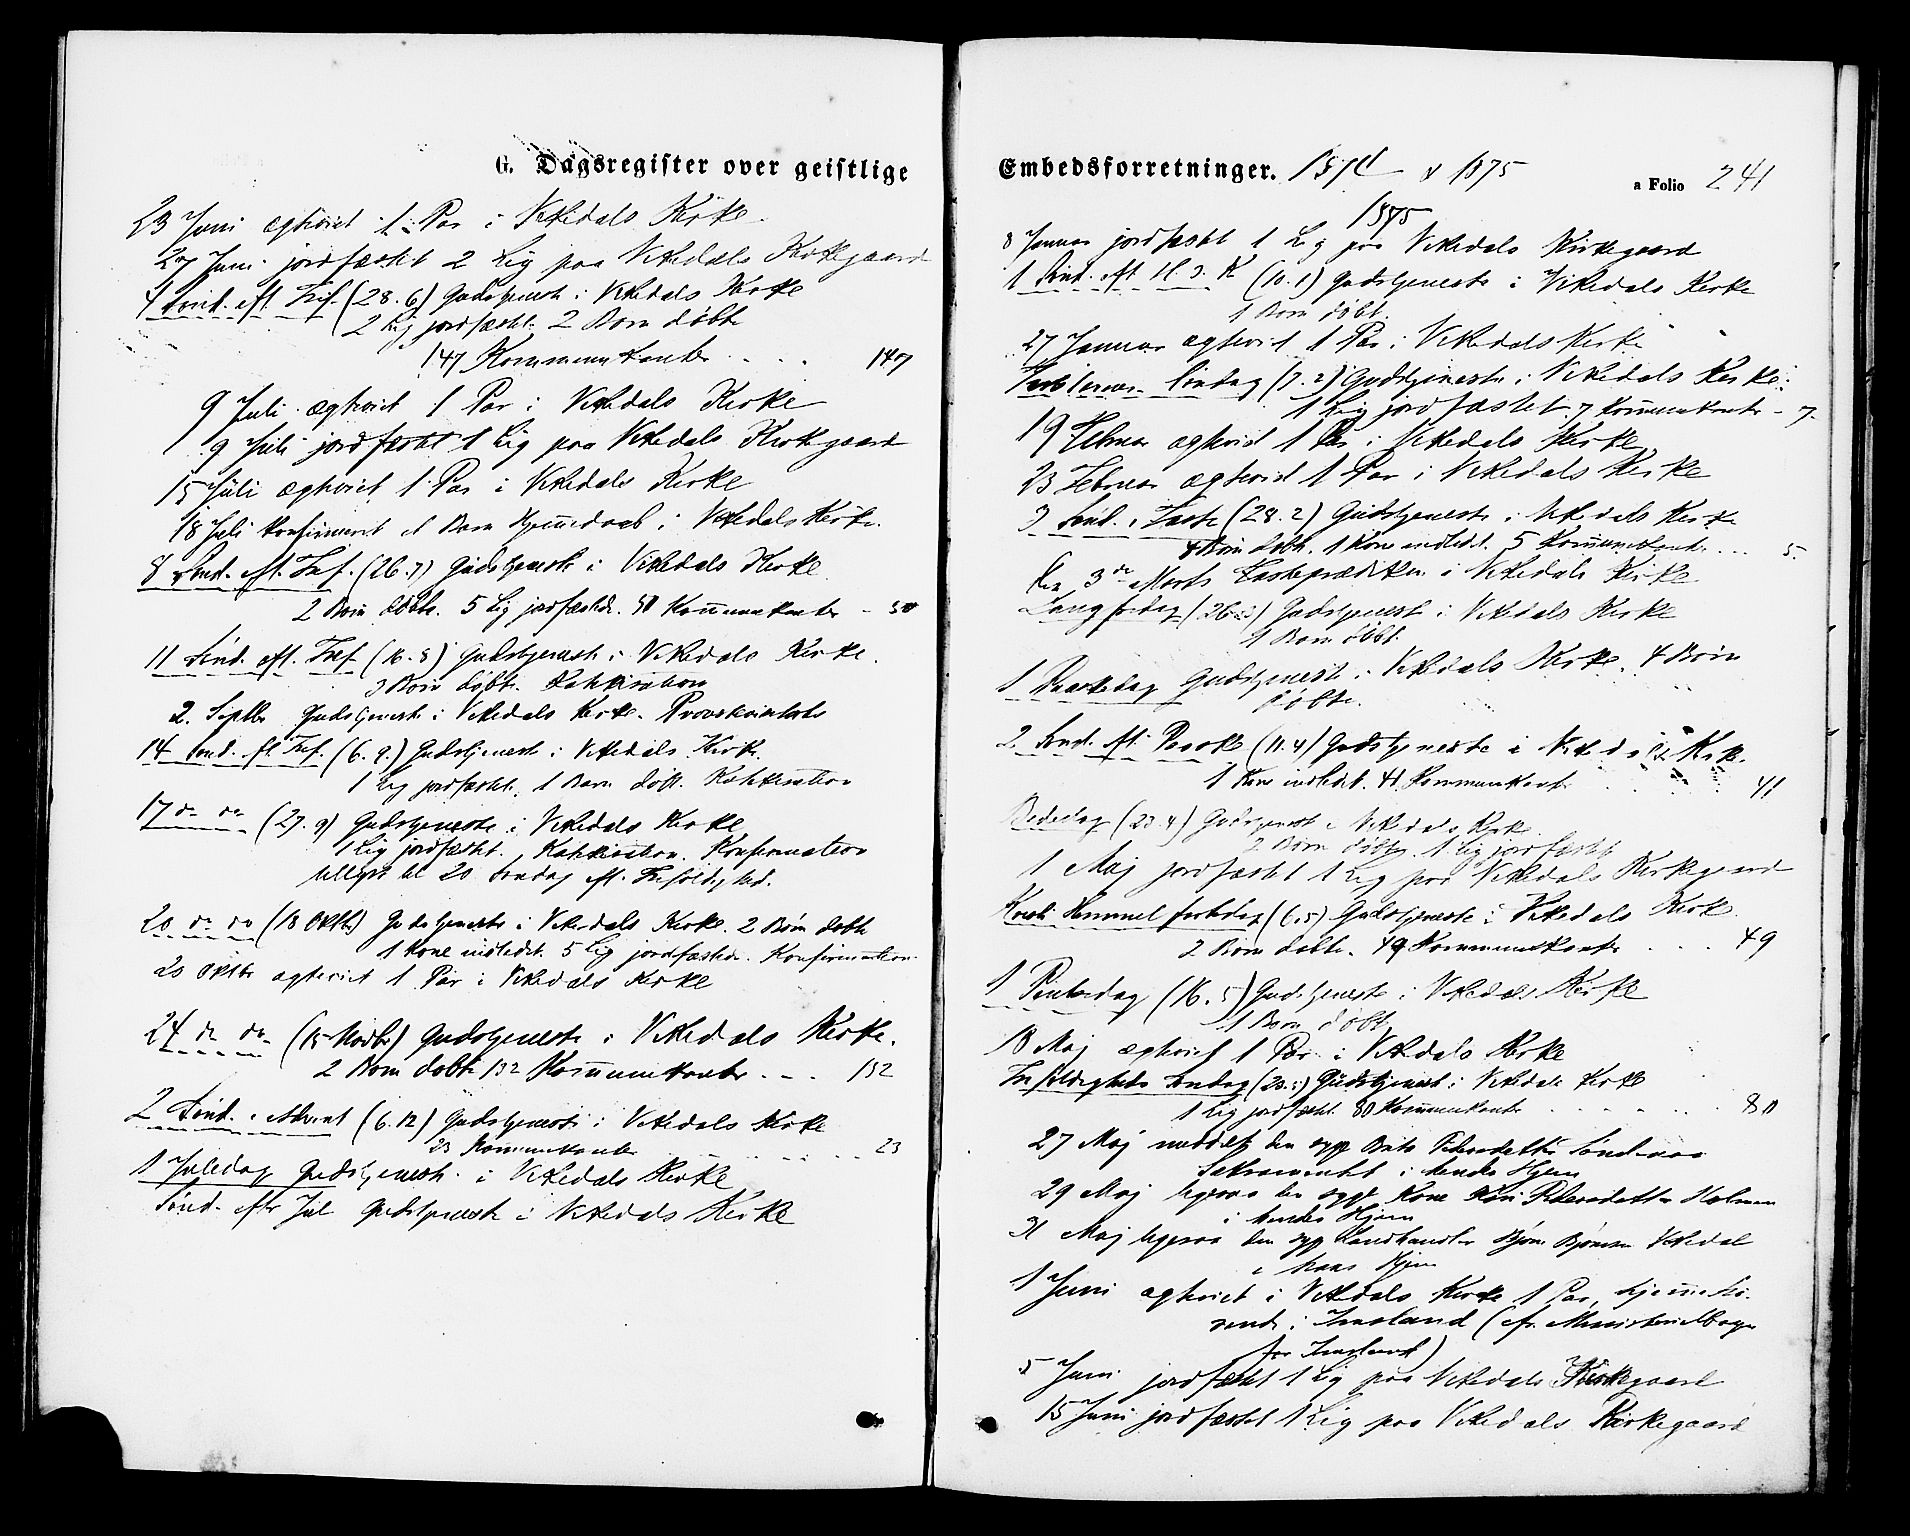 G. Dagsregister over geistlige
23 Juni ægteviet 1 Par i Vikedals Kirke.
27 Juni jordfæstet 2 Lig paa Vikedals Kirkegaard
4 Sønd. eft. Tref. (28.6) Gudstjeneste i Vikedals Kirke
2 Lig jordfæstet. 2 Børn døbte
147 Kommunikanter . . . 147
9 Juli ægteviet 1 Par i Vikedals Kirke
9 Juli jordfæstet 1 Lig paa Vikedals Kirkegaard
15 Juli ægteviet 1 Par i Vikedals Kirke
18 Juli konfirmeret et Barn Hjemmedaab i Vikedals Kirke.
8 Sønd. eft. Tref. (26.7) Gudstjeneste i Vikedals Kirke
2 Børn døbte. 5 Lig jordfæstede. 50 Kommunikanter - 50
11 Sønd. eft. Tref (16.8) Gudstjeneste i Vikedals Kirke.
3 Børn døbte. Katekisation
2. Septbr Gudstjeneste i Vikedals Kirke. Provstevisitats
14 Sønd. eft. Tref. (6.9.) Gudstjeneste i Vikedals Kirke.
1 Lig jordfæstet, 1 Barn døbt. Katekisation
17 do do (27.9) Gudstjeneste i Vikedals Kirke
1 Lig jordfæstet. Katekisation. Konfirmation
tillyst til 20 Søndag eft. Trefoldighed.
20 do do (18 Oktbr) Gudstjeneste i Vikedals Kirke. 2 Børn døbte
1 Kone indledet. 5 Lig jordfæstede. Konfirmation
20 Oktbr ægteviet 1 Par i Vikedals Kirke
24 do do (15 Novbr) Gudstjeneste i Vikedals Kirke.
2 Børn døbte 132 Kommunikanter . . . 132
2 Sønd. i Advent (6.12) Gudstjeneste i Vikedals Kirke
23 Kommunikanter . . . 23
1 Juledag Gudstjeneste i Vikedals Kirke
Sønd. eftr Jul Gudstjeneste i Vikedals Kirke
Embedsforretninger. 1874 & 1875 a Folio 241
1875
8 Januar jordfæstet 1 Lig paa Vikedals Kirkegaard
1 Sønd. eft. H. 3. K (10.1) Gudstjeneste i Vikedals Kirke
1 Barn døbt.
27 Januar ægteviet 1 Par i Vikedals Kirke
Fastelavns Søndag (7.2) Gudstjeneste i Vikedals Kirke.
1 Lig jordfæstet, 7 Kommunikanter - 7
19 Februar ægteviet 1 Par i Vikedals Kirke
23 Februar ægteviet 1 Par i Vikedals Kirke
3 Sønd. i Faste (28.2) Gudstjeneste i Vikedals Kirke
4 Børn døbte. 1 Kone indledet. 5 Kommunikanter . . . 5.
Den 3de Marts Fasteprædiken i Vikedals Kirke
Langfredag (26.3) Gudstjeneste i Vikedals Kirke
1 Barn døbt.
1 Paaskedag Gudstjeneste i Vikedals Kirke. 4 Børn
døbte.
2 Sønd. eft. Paaske (11.4) Gudstjeneste i Vikedals Kirke.
1 Kone indledet. 41 Kommunikanter . . . 41
Bededag (23.4) Gudstjeneste i Vikedals Kirke
2 Børn døbte. 1 Lig jordfæstet
1 Maj jordfæstet 1 Lig paa Vikedals Kirkegaard
Kristi Himmelfartsdag (6.5) Gudstjeneste i Vikedals Kirke
2 Børn døbte. 49 Kommunikanter . . . 49
1 Pintsedag (16.5) Gudstjeneste i Vikedals Kirke
1 Barn døbt.
18 Maj ægteviet 1 Par i Vikedals Kirke
Trefoldigheds Søndag (23.5) Gudstjeneste i Vikedals Kirke
1 Lig jordfæstet. 80 Kommunikanter . . . 80
27 Maj meddelt den syge Brita Pedersdatter
Sakramentet i hendes Hjem
29 Maj ligesaa den syge Kone Kari Pedersdatter Holmen
i hendes Hjem
31 Maj ligesaa den syge Landhandler Bjørn Bjørnsen Vikedal
i hans Hjem
1 Juni ægteviet i Vikedals Kirke 1 Par, hjemmehø-
rende i Imsland (cfr. Ministerialbogen
for Imsland)
5 Juni jordfæstet 1 Lig paa Vikedals Kirkegaard
15 Juni jordfæstet 1 Lig paa Vikedals Kirkegaard